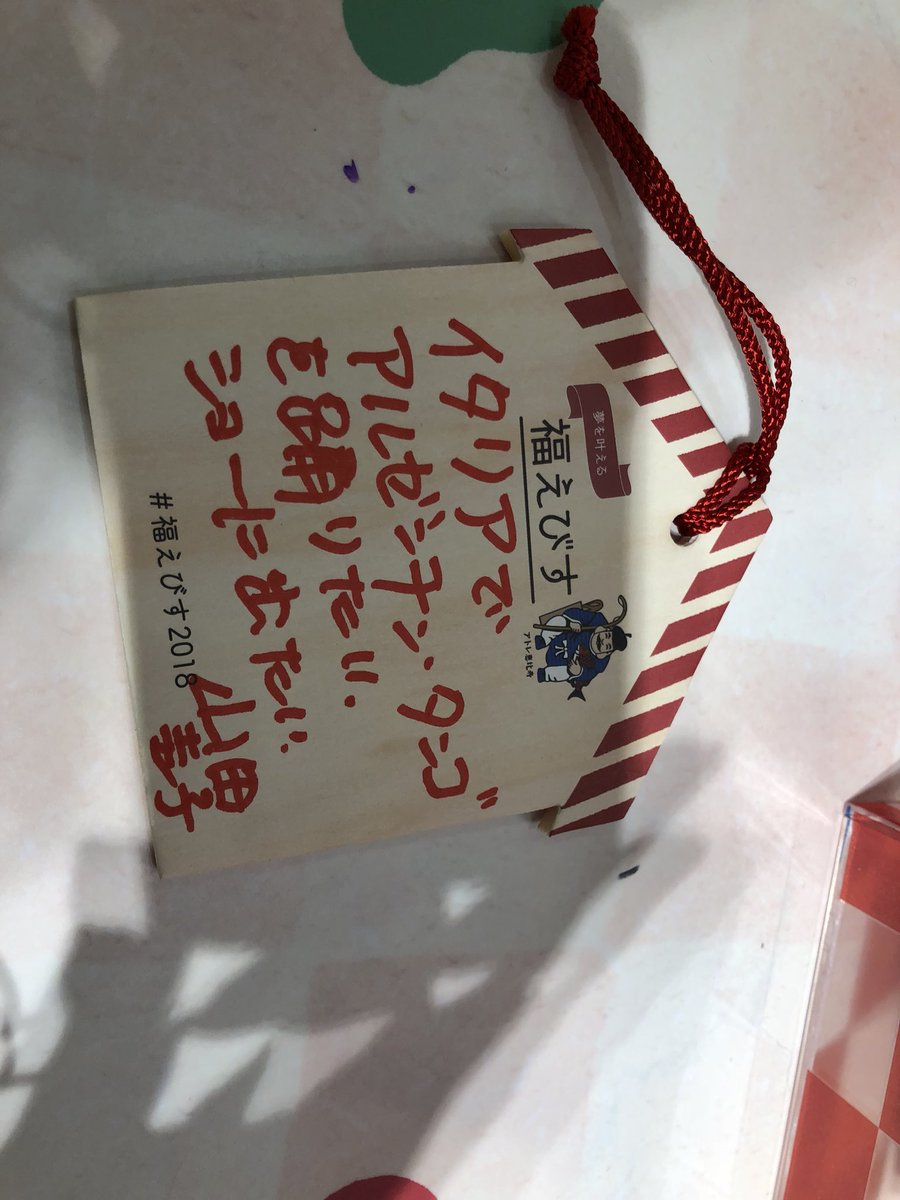 夢を叶える
福えびす
アトレ恵比寿
イタリアで
アルゼンチン・タンゴ
を踊りたい。
ショーに出たい。
山田
#福えびす2018